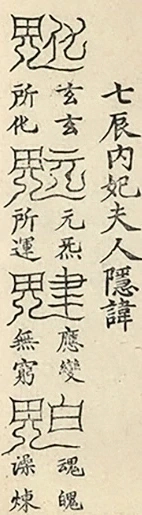 七辰內妃夫人隱諱
玄玄
所化
元炁
所運
應變
無窮
魂魄
澡煉